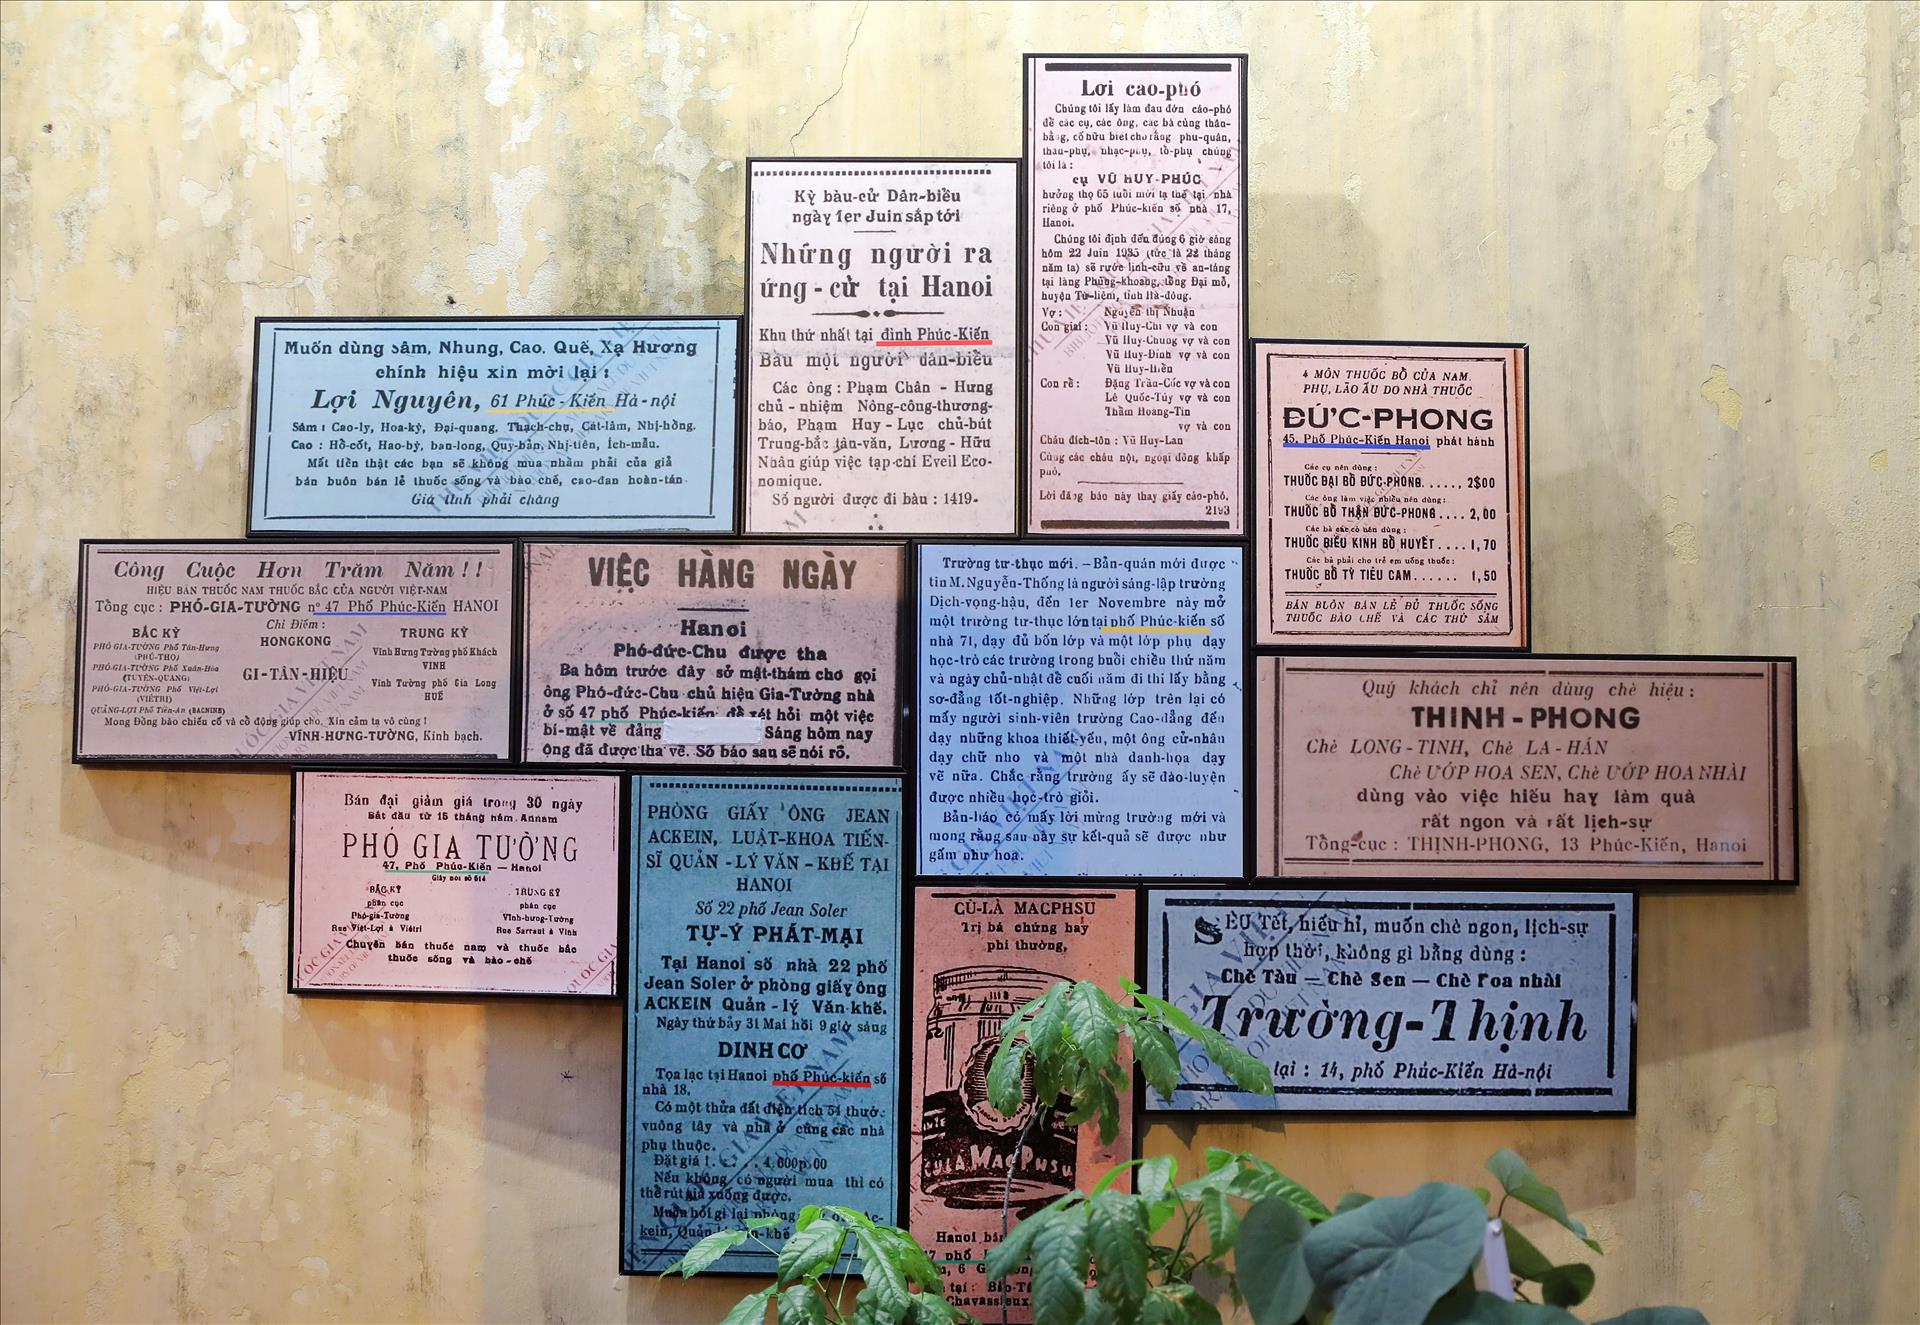 Lợi cao-phó
Chúng tôi lấy làm đau đớn cáo-phó
để các cụ, các ông, các bà cùng thân-
bằng, cố hữu biết cho rằng phu-quân,
thân-phụ, nhạc-phụ, tồ-phụ chúng
tôi là :
cụ VŨ HUY-PHÚC
hưởng thọ 65 tuổi mới tạ thế tại nhà
riêng ở phố Phúc-kiến số nhà 17,
Hanoi.
Chúng tôi định đến đúng 6 giờ sáng
hôm 22 Juin 1935 (tức là 22 tháng
năm ta) sẽ rước linh-cữu về an-táng
tại làng Phùng-khoang, tổng Đại mỗ,
huyện Từ-liêm, tỉnh Hà-đông.
Vợ : Nguyễn thị Nhuận
Con giai : Vũ Huy-Chi vợ và con
Vũ Huy-Chung vợ và con
Vũ Huy-Đỉnh vợ và con
Vũ Huy-Hiển
Con rể : Đặng Trần-Cốc vợ và con
Lê Quốc-Túy vợ và con
Thẩm Hoàng-Tín
vợ và con
Cháu đích-tôn : Vũ Huy-Lan
Cùng các cháu nội, ngoại đồng khấp
phó.
Lời đăng báo này thay giấy cáo-phó.
2193
Kỳ bàu-cử Dân-biểu
ngày 1er Juin sắp tới
Những người ra
ứng-cử tại Hanoi
Khu thứ nhất tại đình Phúc-Kiến
Bầu một người dân-biểu
Các ông : Phạm Chân - Hưng
chủ-nhiệm Nông-công-thương-
báo, Phạm Huy-Lục chủ-bút
Trung-bắc tân-văn, Lương-Hữu
Nhàn giúp việc tạp-chí Eveil Eco-
nomique.
Số người được đi bàu : 1419-
Muốn dùng sâm, Nhung, Cao. Quế, Xạ Hương
chính hiệu xin mời lại :
Lợi Nguyên, 61 Phúc-Kiến Hà-nội
Sâm : Cao-ly, Hoa-kỳ, Đại-quang, Thạch-chụ, Cát-lâm, Nhị-hồng.
Cao : Hổ-cốt, Hao-bỳ, ban-long, Quy-bản, Nhị-tiên, Ích-mẫu.
Mất tiền thật các bạn sẽ không mua nhầm phải của giả
bán buôn bán lẻ thuốc sống và bào chế, cao-đan hoàn-tán.
Giá tính phải chăng
4 MÓN THUỐC BỔ CỦA NAM.
PHỤ, LÃO ẤU DO NHÀ THUỐC
ĐỨC-PHONG
45, Phố Phúc-Kiến Hanoi phát hành
Các cụ nên dùng :
THUỐC ĐẠI BỔ ĐỨC-PHONG..... 2$00
Các ông làm việc nhiều nên dùng :
THUỐC BỔ THẬN ĐỨC-PHONG.... 2,00
Các bà các cô nên dùng :
THUỐC ĐIỀU KINH BỔ HUYẾT.... 1,70
Các bà phải cho trẻ em uống thuốc :
THUỐC BỔ TỲ TIÊU CAM...... 1,50
BÁN BUÔN BÁN LẺ ĐỦ THUỐC SỐNG
THUỐC BÀO CHẾ VÀ CÁC THỨ SÂM
Công Cuộc Hơn Trăm Năm!!
HIỆU BÁN THUỐC NAM THUỐC BẮC CỦA NGƯỜI VIỆT-NAM
Tổng cục : PHÓ-GIA-TƯỜNG nº 47 Phố Phúc-Kiến HANOI
Chi Điếm :
BẮC KỲ HONGKONG TRUNG KỲ
PHÓ GIA-TƯỜNG Phố Tân-Hưng
(PHÚ-THỌ)
PHÓ-GIA-TƯỜNG Phố Xuân-Hòa
(TUYÊN-QUANG)
PHÓ-GIA-TƯỜNG Phố Việt-Lợi
(VIÉTRI)
QUẢNG-LỢI Phố Tiền-An (BACNINE)
GI-TÂN-HIỆU
Vĩnh Hưng Tường phố Khách
VINH
Vĩnh Tường phố Gia Long
HUẾ
Mong Đồng bào chiếu cố và cổ động giúp cho. Xin cảm tạ vô cùng !
VĨNH-HƯNG-TƯỜNG, Kính bạch.
VIỆC HÀNG NGÀY
Hanoi
Phó-đức-Chu được tha
Ba hôm trước đây sở mật-thám cho gọi
ông Phó-đức-Chu chủ hiệu Gia-Tường nhà
ở số 47 phố Phúc-kiến để xét hỏi một việc
bí-mật về đảng Sáng hôm nay
ông đã được tha về. Số báo sau sẽ nói rõ.
Trường tư-thục mới. – Bản-quán mới được
tin M. Nguyễn-Thống là người sáng-lập trường
Dịch-vọng-hậu, đến 1er Novembre này mở
một trường tư-thục lớn tại phố Phúc-kiến số
nhà 71, dạy đủ bốn lớp và một lớp phụ dạy
học-trò các trường trong buổi chiều thứ năm
và ngày chủ-nhật để cuối năm đi thi lấy bằng
sơ-đẳng tốt-nghiệp. Những lớp trên lại có
mấy người sinh-viên trường Cao-đẳng đến
dạy những khoa thiết-yếu, một ông cử-nhân
dạy chữ nho và một nhà danh-họa dạy
vẽ nữa. Chắc rằng trường ấy sẽ đào-luyện
được nhiều học-trò giỏi.
Bản-báo có mấy lời mừng trường mới và
mong rằng sau này sự kết-quả sẽ được như
gấm như hoa.
Quý khách chỉ nên dùng chè hiệu :
THINH-PHONG
Chè LONG-TINH, Chè LA-HÁN
Chè ƯỚP HOA SEN, Chè ƯỚP HOA NHÀI
dùng vào việc hiếu hay làm quà
rất ngon và rất lịch-sự
Tổng-cục : THỊNH-PHONG, 13 Phúc-Kiến, Hanoi
Bán đại giảm giá trong 30 ngày
Bắt đầu từ 15 tháng năm Annam
PHÓ GIA TƯỜNG
47, Phố Phúc-Kiến — Hanoi
Giây nói số 614
BẮC KỲ TRUNG KỲ
phân cục phân cục
Phó-gia-Tường Vĩnh-hưng-Tường
Rue Việt-Lợi à Viétri Rue Sarraut à Vinh
Chuyên bán thuốc nam và thuốc bắc
thuốc sống và bào-chế
PHÒNG GIẤY ÔNG JEAN
ACKEIN, LUẬT-KHOA TIẾN-
SĨ QUẢN-LÝ VĂN-KHẾ TẠI
HANOI
Số 22 phố Jean Soler
TỰ-Ý PHÁT-MẠI
Tại Hanoi số nhà 22 phố
Jean Soler ở phòng giấy ông
ACKEIN Quản-lý Văn-khế.
Ngày thứ bảy 31 Mai hồi 9 giờ sáng
DINH CƠ
Tọa lạc tại Hanoi phố Phúc-kiến số
nhà 18.
Có một thửa đất diện tích 54 thước
vuông tây và nhà ở cùng các nhà
phụ thuộc.
Đặt giá !..... 4.600p.00
Nếu không có người mua thì có
thể rút giá xuống được.
Muốn hỏi gì lại phòng
kein, Quản
CÙ-LÀ MACPHSU
Trị bá chứng hay
phi thường,
CULA MACPHSU
Hanoi bán
phố
, 6 G
tại : Bảo-T
Chavassieux.
SÊU Tết, hiếu hỉ, muốn chè ngon, lịch-sự
hợp thời, không gì bằng dùng :
Chè Tàu — Chè Sen — Chè Hoa nhài
Trường-Thịnh
lại : 14, phố Phúc-Kiến Hà-nội